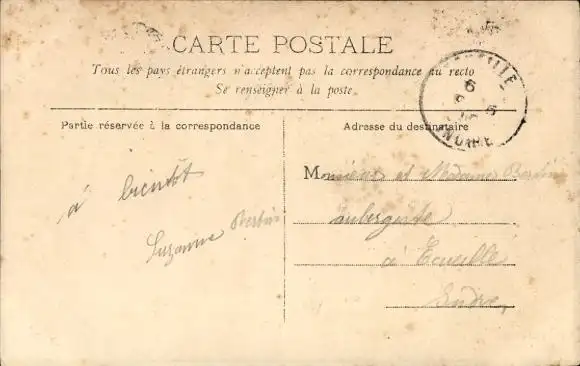 CARTE POSTALE
Tous les pays étrangers n'acceptent pas la correspondance au recto
Se renseigner à la poste.
Partie réservée à la correspondance
Adresse du destinataire
à bientôt
Suzanne Bertin
Monsieur et Madame Bertin
aubergiste
à Ecueillé
Indre